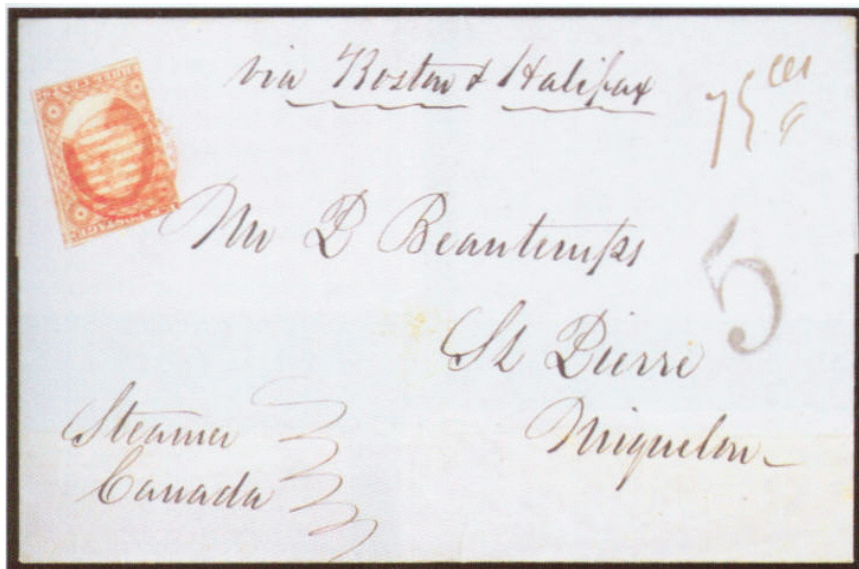 via Boston & Halifax
75
Mr P Beautemps
5
St Pierre
Miquelon
Steamer
Canada